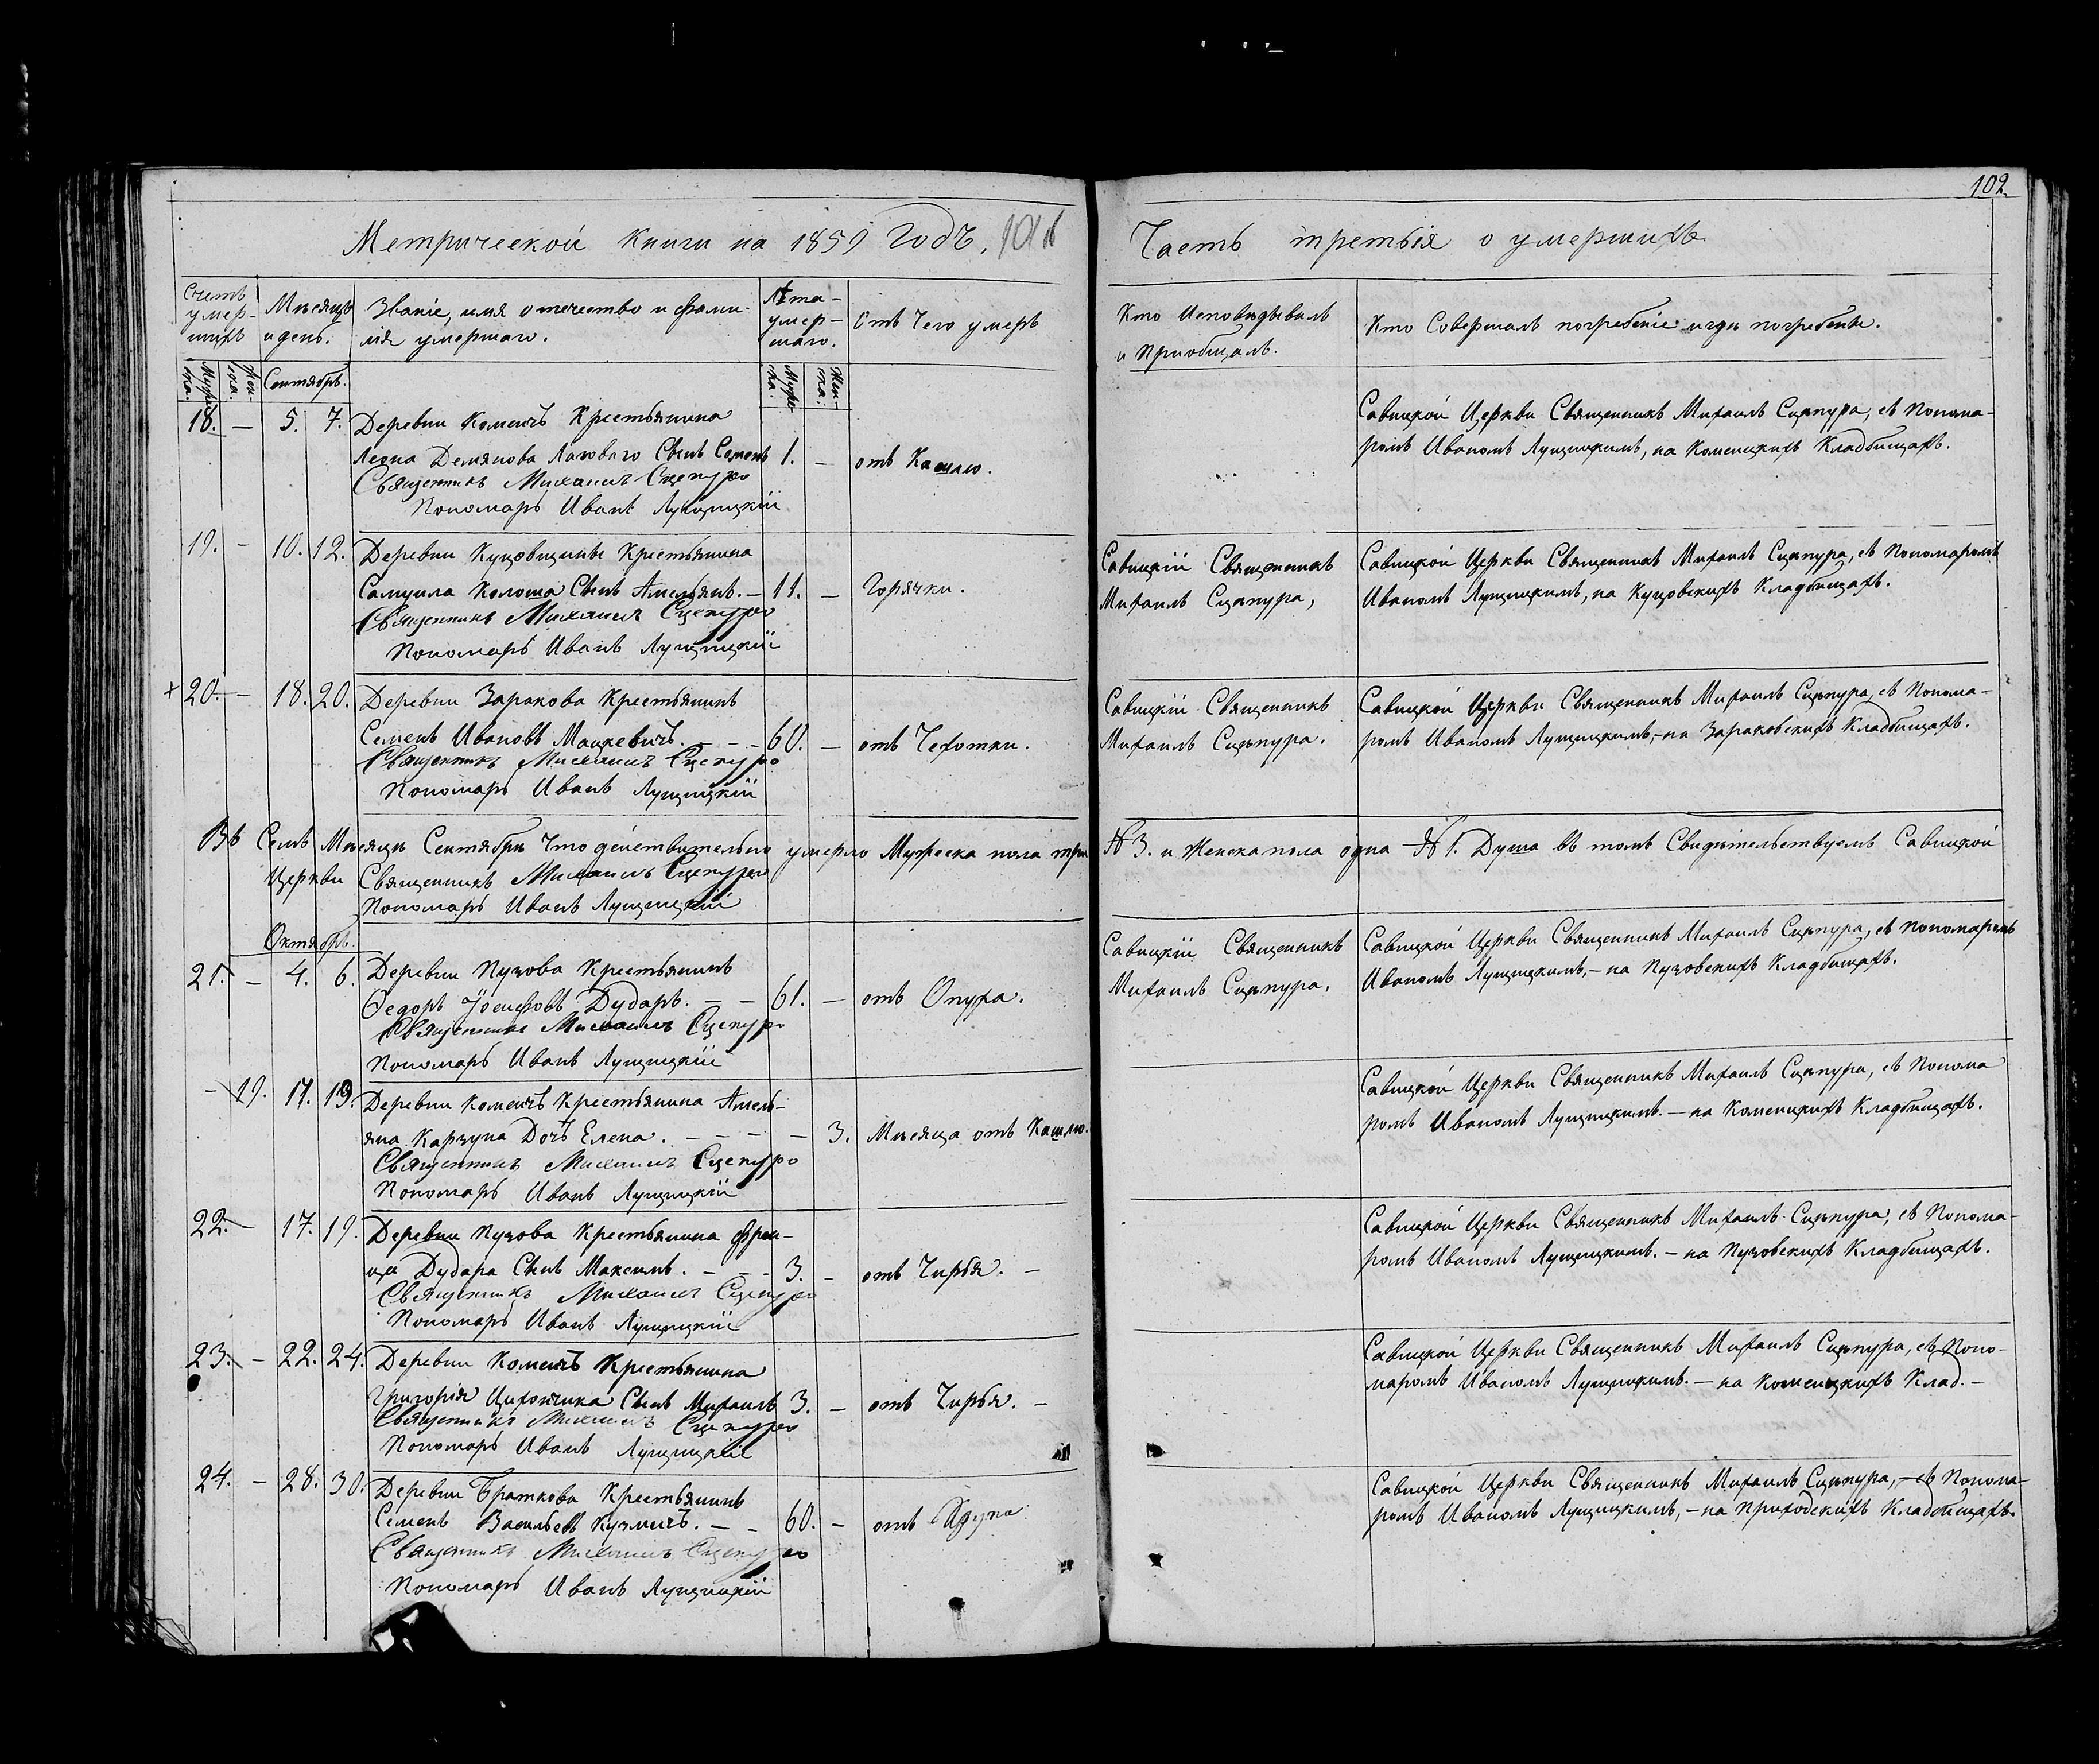 102.
Метрической Книги на 1859 Годъ.
Часть третья о умершихъ
Счетъ умер-шихъ
Мѣсяцъ и день.
Званіе, имя отечество и фами-
лія умершаго.
Лѣта умер-шаго.
Отъ Чего умеръ
Кто Исповѣдывалъ
и Приобщалъ.
Кто Совершалъ погребеніе и гдѣ погребены.
Муже-ска. Жен-ска. Сентябрь. Муже-ска. Жен-ска.
18. — 5. 7. Деревни Коменъ Крестьянина
Леона Демянова Лаховаго Сынъ Семенъ 1. — отъ Кашлю.
Священникъ Михаилъ Сцепуро
Пономарь Иванъ Лущицкій
Савицкой Церкви Священникъ Михаилъ Сцѣпура, съ Понома-
ромъ Иваномъ Лущицкимъ, на Коменскихъ Кладбищахъ.
19. — 10. 12. Деревни Куцовщины Крестьянина
Самуила Колоша Сынъ Амельянъ. — 11. — Горячки.
Священникъ Михаилъ Сцепуро
Пономарь Иванъ Лущицкій
Савицкій Священникъ
Михаилъ Сцѣпура,
Савицкой Церкви Священникъ Михаилъ Сцѣпура, съ Пономаромъ
Иваномъ Лущицкимъ, на Куцовскихъ Кладбищахъ.
20. — 18. 20. Деревни Заракова Крестьянинъ
Семенъ Ивановъ Мацкевичъ. — — — 60. — отъ Чехотки.
Священникъ Михаилъ Сцепуро
Пономарь Иванъ Лущицкій
Савицкій Священникъ
Михаилъ Сцѣпура.
Савицкой Церкви Священникъ Михаилъ Сцѣпура, съ Понома-
ромъ Иваномъ Лущицкимъ, — на Зараковскихъ Кладбищахъ.
Въ Семъ Мѣсяцѣ Сентябрѣ Что действительно умерло Мужеска пола три № 3. и Женска пола одна № 1. Душа въ томъ Свидѣтельствуемъ Савицкой
Церкви Священникъ Михаилъ Сцепуро
Пономарь Иванъ Лущицкій
Октябрь.
21. — 4. 6. Деревни Пузова Крестьянинъ
Ѳедоръ Іосифовъ Дударь. — — 61. — отъ Опуха.
Священникъ Михаилъ Сцепуро
Пономарь Иванъ Лущицкій
Савицкій Священникъ
Михаилъ Сцѣпура,
Савицкой Церкви Священникъ Михаилъ Сцѣпура, съ Пономаромъ
Иваномъ Лущицкимъ, — на Пузовскихъ Кладбищахъ.
— 19. 17. 19. Деревни Коменъ Крестьянина Амель-
яна Карзуна Дочь Елена. — — — — 3. Мѣсяца отъ Кашлю.
Священникъ Михаилъ Сцепуро
Пономарь Иванъ Лущицкій
Савицкой Церкви Священникъ Михаилъ Сцѣпура, съ Понома
ромъ Иваномъ Лущицкимъ. — на Коменскихъ Кладбищахъ.
22. — 17. 19. Деревни Пузова Крестьянина Фран-
ца Дудара Сынъ Максимъ. — — — 3. — отъ Чирья. —
Священникъ Михаилъ Сцепуро
Пономарь Иванъ Лущицкій
Савицкой Церкви Священникъ Михаилъ Сцѣпура, съ Понома-
ромъ Иваномъ Лущицкимъ. — на Пузовскихъ Кладбищахъ.
23. — 22. 24. Деревни Коменъ Крестьянина
Григорія Цихончика Сынъ Михаилъ 3. — отъ Чирья. —
Священникъ Михаилъ Сцепуро
Пономарь Иванъ Лущицкій
Савицкой Церкви Священникъ Михаилъ Сцѣпура, съ Поно-
маромъ Иваномъ Лущицкимъ. — на Коменскихъ Клад. —
24. — 28. 30. Деревни Браткова Крестьянинъ
Семенъ Васильевъ Кузмичъ. — — 60. — отъ
Священникъ Михаилъ Сцепуро
Пономарь Иванъ Лущицкій
Савицкой Церкви Священникъ Михаилъ Сцѣпура, — съ Понома-
ромъ Иваномъ Лущицкимъ, — на Приходскихъ Кладбищахъ.